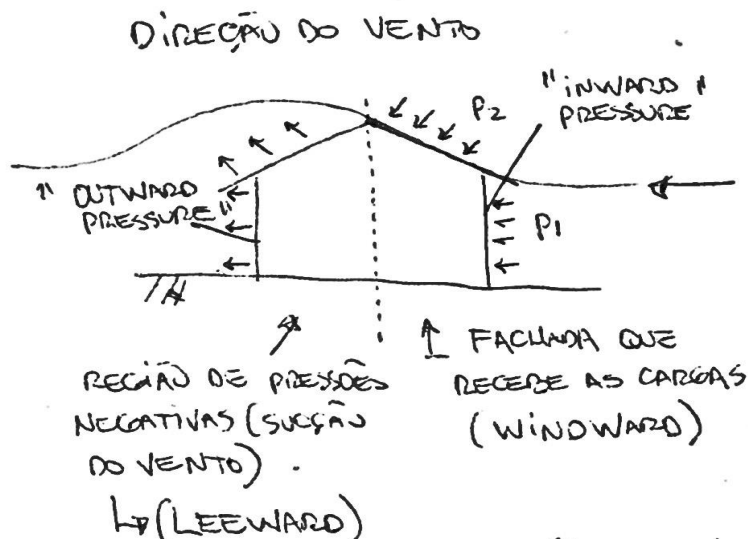 DIREÇÃO DO VENTO
"INWARD"
PRESSURE
P2
"OUTWARD
PRESSURE"
P1
REGIÃO DE PRESSÕES
NEGATIVAS (SUCÇÃO
DO VENTO).
↳ (LEEWARD)
FACHADA QUE
RECEBE AS CARGAS
(WINDWARD)